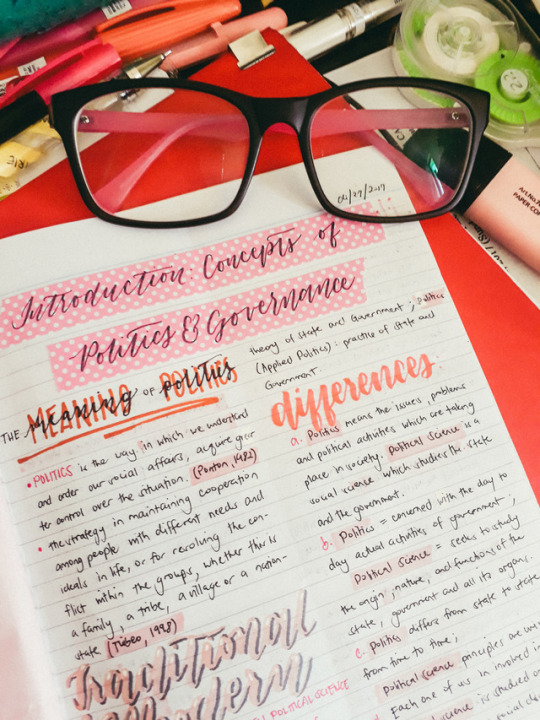 06/27/2019
Introduction: Concepts of
Politics & Governance
THE MEANING OF POLITICS
meaning politics
• POLITICS is the way in which we understand
and order our social affairs, acquire grea
ter control over the situation. (Ponton, 1982)
• the strategy in maintaining cooperation
among people with different needs and
ideals in life, or for resolving the con-
flict within the groups, whether this is
a family, a tribe, a village or a nation-
state (Tabeo, 1998)
Traditional
theory of state and Government ; Politics
(Applied Politics) : practice of state and
Government.
differences:
a. Politics means the issues, problems
and political activities which are taking
place in society, Political science is a
social science which studies the state
and the government.
b. Politics = concerned with the day to
day actual activities of government ;
Political science = seeks to study
the origin, nature, and functions of the
state, government and all its organs.
c. Politics differs from state to state
from time to time ;
Political science principles are
Each one of us in involved in
science is studied
POLITICAL SCIENCE
PAPER